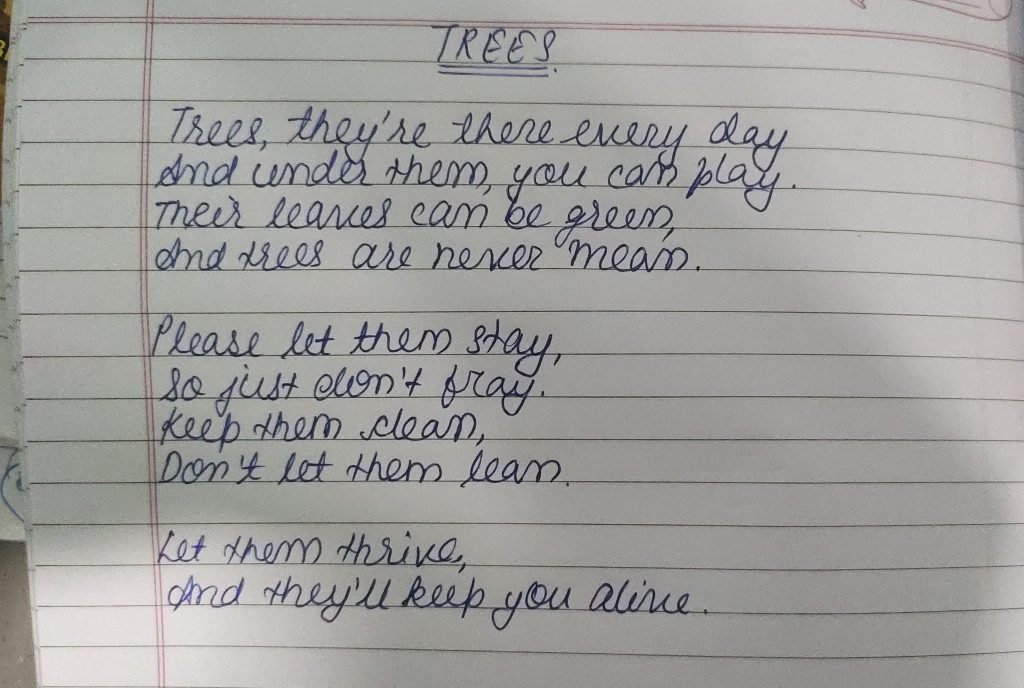 TREES.
Trees, they're there every day
And under them, you can play.
Their leaves can be green,
And trees are never mean.
Please let them stay,
So just don't fray.
Keep them clean,
Don't let them lean.
Let them thrive,
And they'll keep you alive.